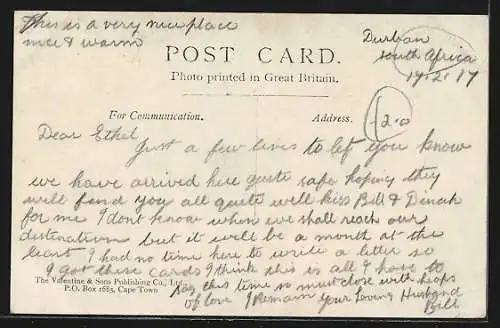 This is a very nice place
nice & warm
Durban
South Africa
19.2.17
POST CARD.
Photo printed in Great Britain.
For Communication.
Address.
2.0
Dear Ethel
Just a few lines to let you know
we have arrived here quite safe hoping they
will find you all quite well kiss Bill & Dinah
for me I dont know when we shall reach our
destination but it will be a month at the
least I had no time here to write a letter so
I got these cards I think this is all I have to
say this time so must close with heaps
of love I Remain your Loving Husband
Bill
The Valentine & Sons Publishing Co., Ltd.
P.O. Box 1685, Cape Town